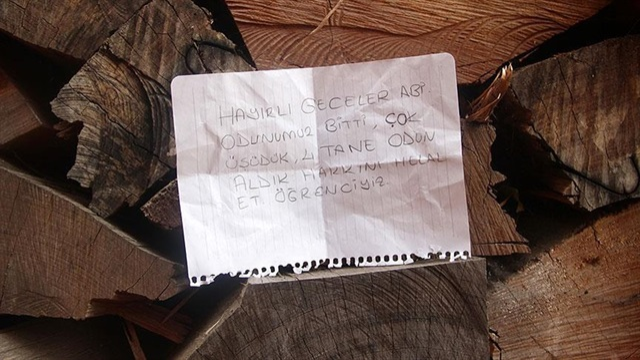 HAYIRLI GECELER ABİ
ODUNUMUZ BİTTİ, ÇOK
ÜŞÜDÜK, 4 TANE ODUN
ALDIK HAKKINI HELAL
ET ÖĞRENCİYİZ